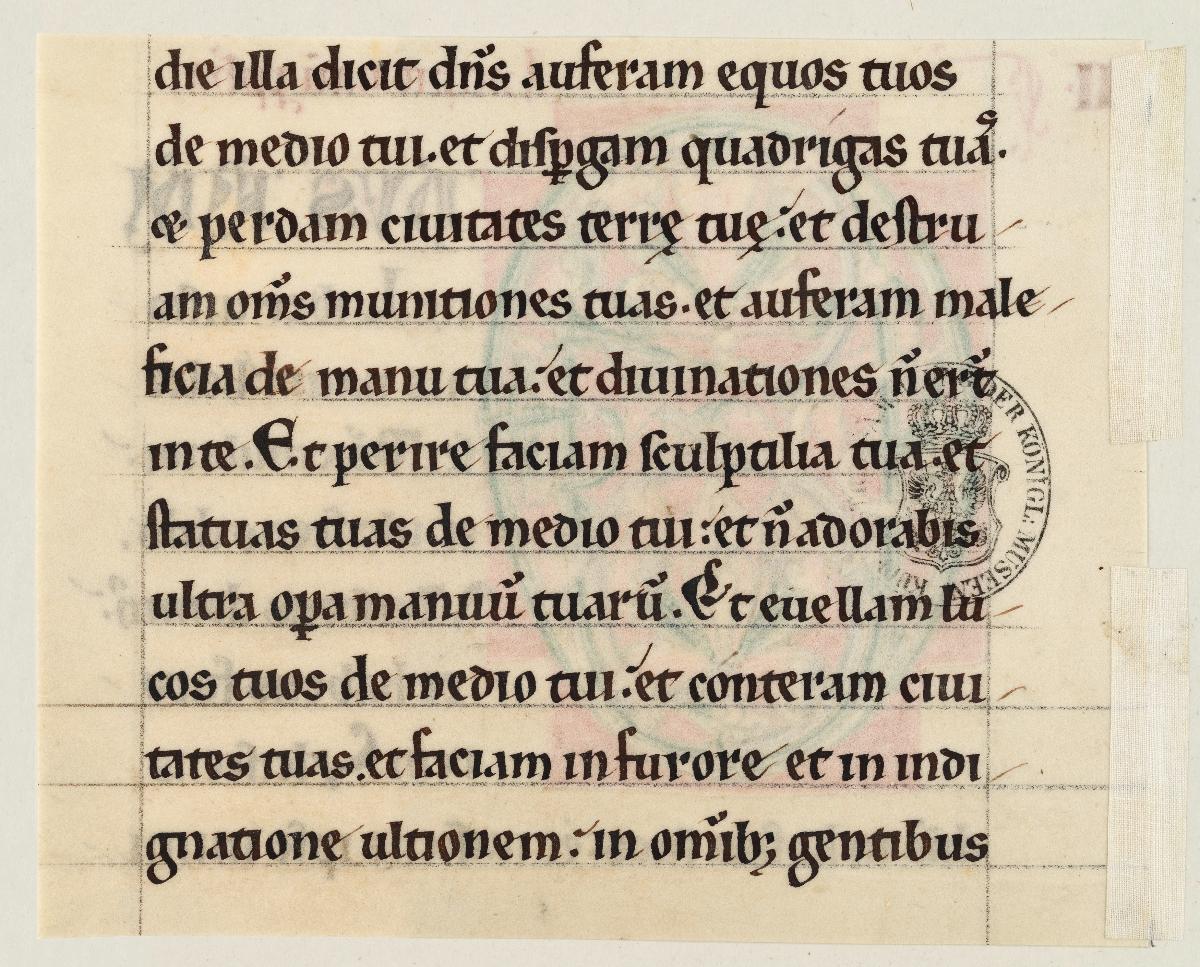 die illa dicit dn̄s auferam equos tuos
de medio tui. et disꝑgam quadrigas tuaˢ.
& perdam ciuitates terrę tuę: et destru
am om̄s munitiones tuas. et auferam male
ficia de manu tua: et diuinationes n̄ er̄t
in te. Et perire faciam sculptilia tua. et
statuas tuas de medio tui: et n̄ adorabis
ultra oꝑa manuū tuarū. Et euellam lu
cos tuos de medio tui: et conteram ciui
tates tuas. et faciam in furore et in indi
gnatione ultionem: in om̄ib; gentibus
DER KÖNIGL: MUSEEN